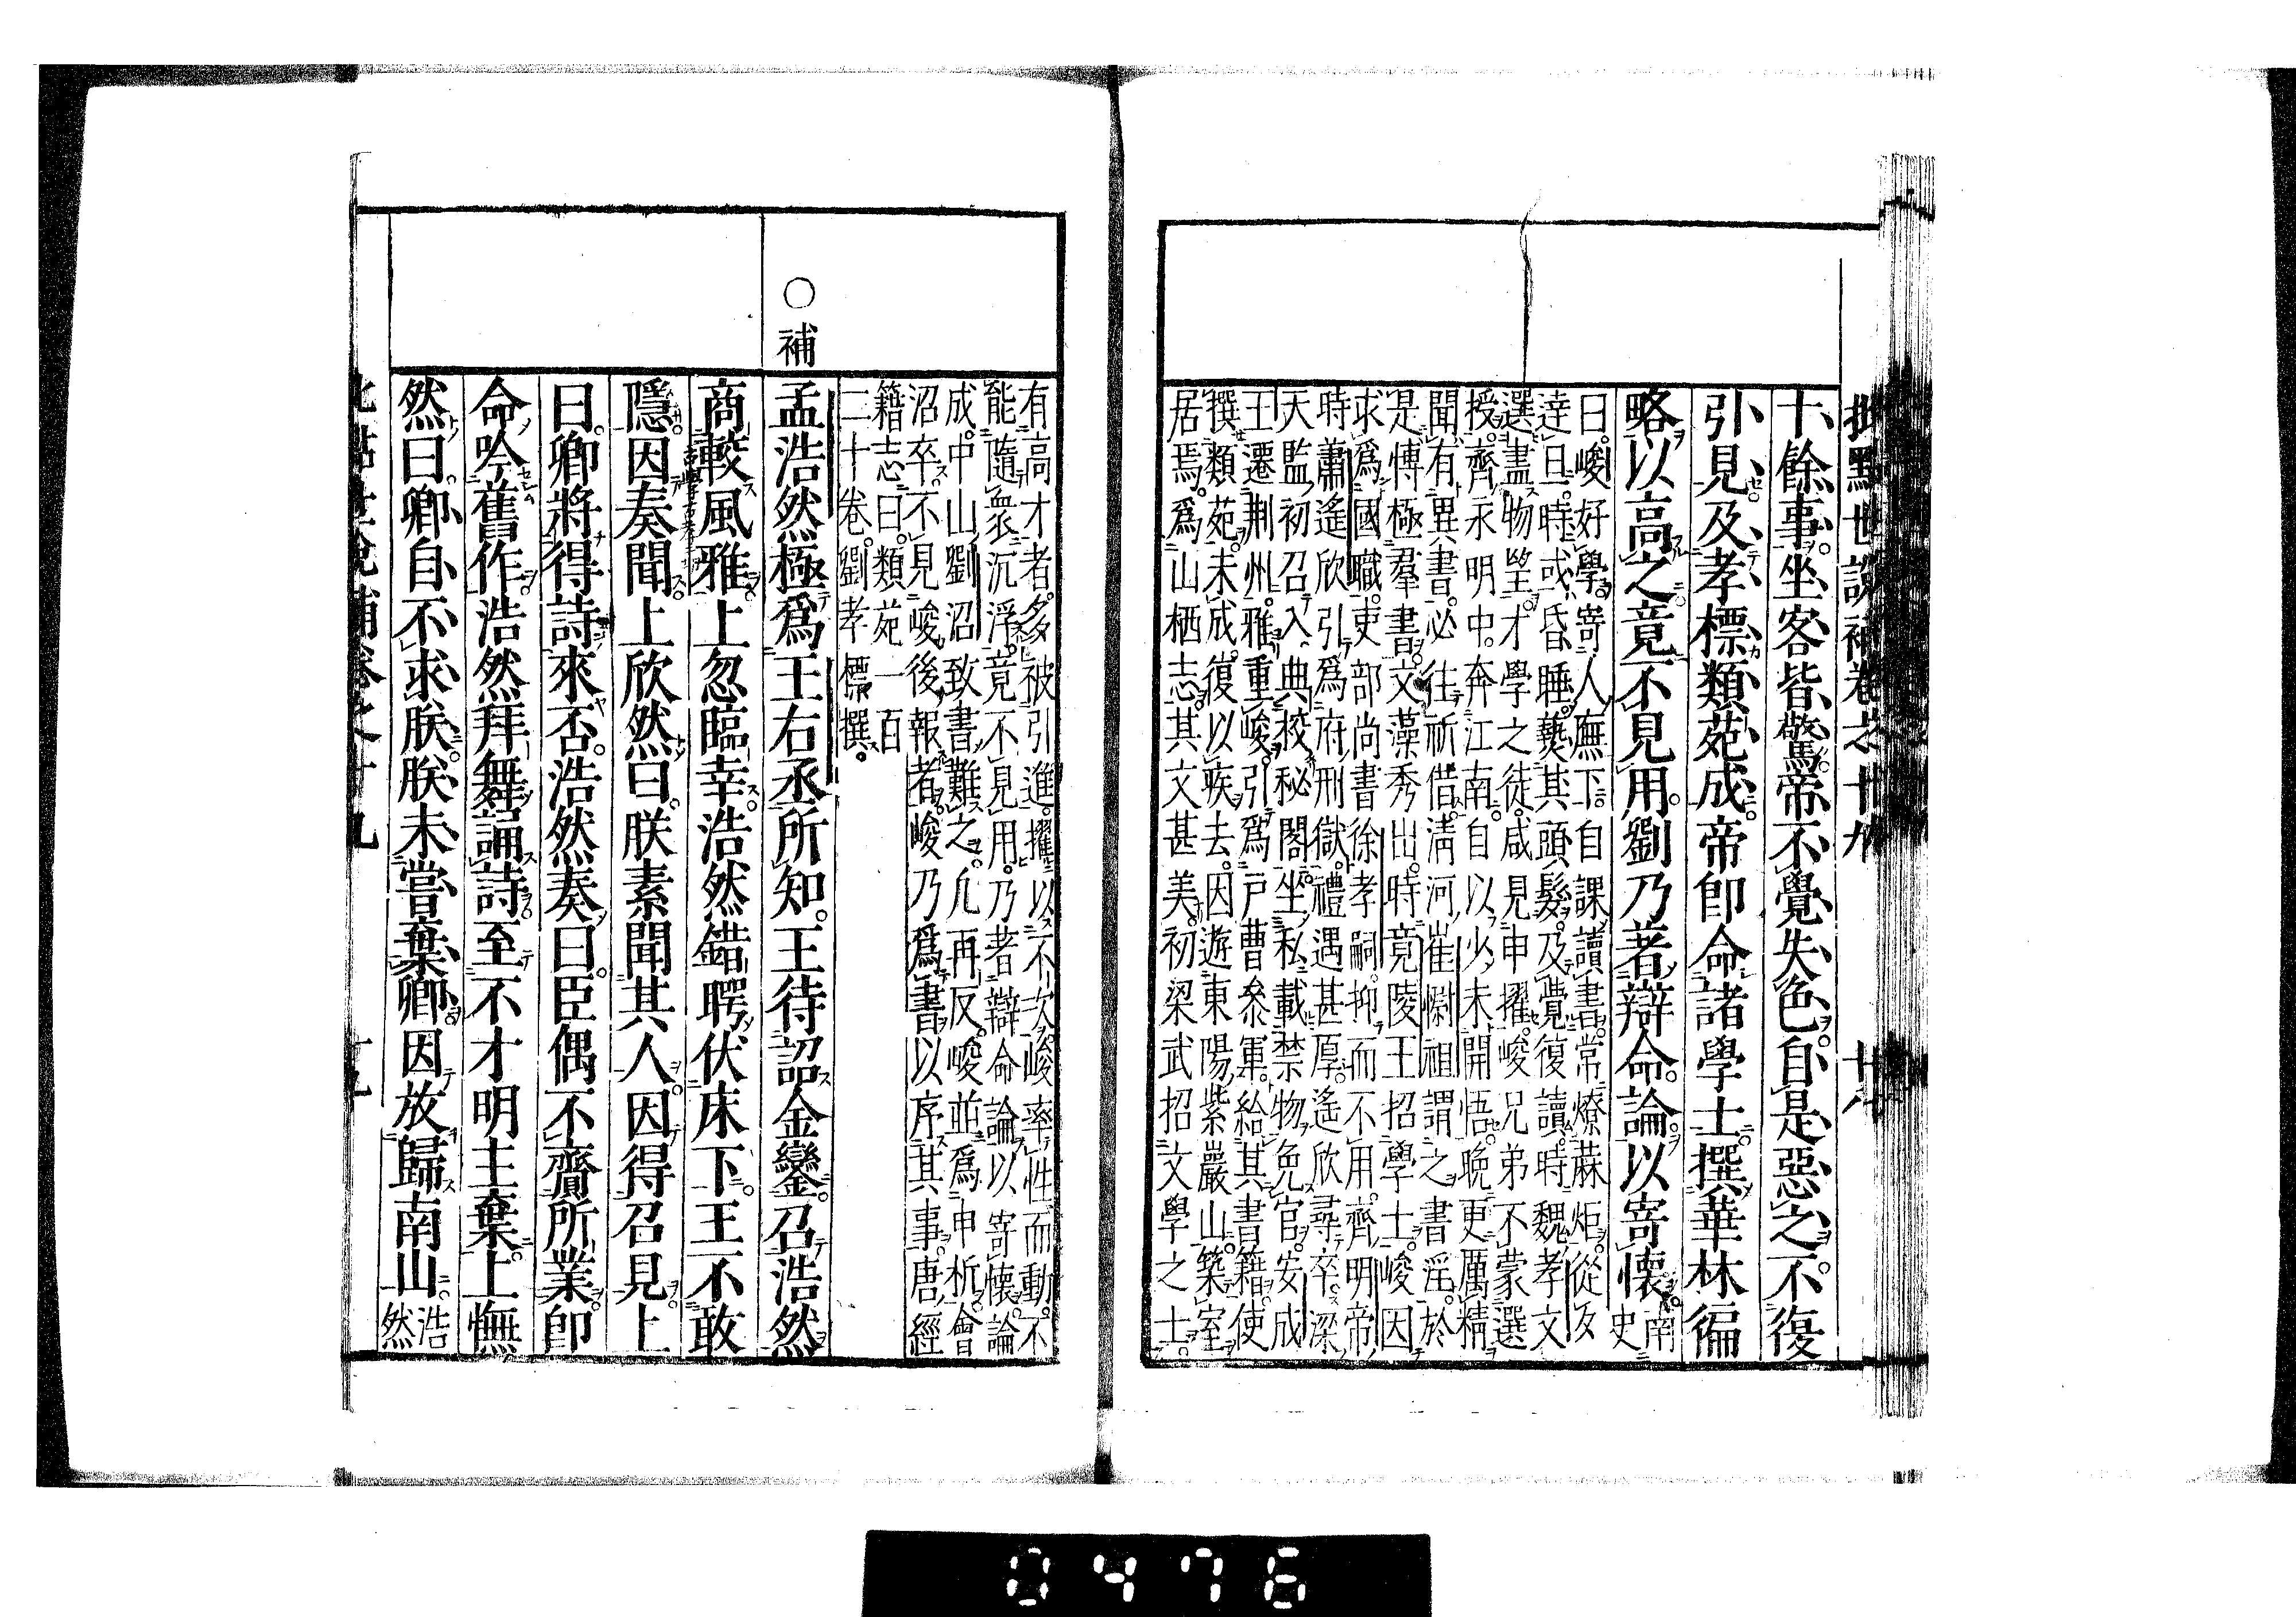 批點世說補卷之十九 廿八
十餘事坐客皆驚帝不覺失色。自是惡之不復
引見及孝標類苑成。帝即命諸學士撰華林徧
略以高之竟不見用。劉乃著辯命論以寄懷。南史
曰。峻好學寄人廡下。自課讀書。常燎麻炬。從夜
達旦。時或昏睡。爇其頭髮。及覺復讀。時魏孝文
選盡物望。才學之徒。咸見申擢。峻兄弟不蒙選
授。齊永明中。奔江南。自以少未開悟。晚更厲精
聞有異書。必往祈借。淸河崔慰祖謂之書淫。於
是博極羣書。文藻秀出。時竟陵王招學士。峻因
求爲國職。吏部尚書徐孝嗣。抑而不用。齊明帝
時蕭遙欣引爲府刑獄。禮遇甚厚。遙欣尋卒。梁
天監初召入典校秘閣。坐私載禁物。免官。安成
王遷荆州。雅重峻。引爲戸曹參軍。給其書籍。使
撰類苑。未成。復以疾去。因遊東陽紫巖山。築室
居焉。爲山栖志。其文甚美。初梁武招文學之士。
有高才者。多被引進。擢以不次。峻率性而動。不
能隨衆沉浮。竟不見用。乃著辯命論以寄懷。論
成。中山劉沼致書難之。凡再反。峻並爲申析。會
沼卒。不見峻後報者。峻乃爲書以序其事。唐經
籍志曰。類苑一百
二十卷。劉孝標撰。
○補
孟浩然極爲王右丞所知。王待詔金鑾。召浩然
商較風雅。上忽臨幸。浩然錯愕伏床下。王不敢
隱。因奏聞。上欣然曰。朕素聞其人。因得召見。上
曰。卿將得詩來否。浩然奏曰。臣偶不齎所業。即
命吟舊作。浩然拜舞誦詩。至不才明主棄。上憮
然曰。卿自不求朕。朕未嘗棄卿。因放歸南山。浩然
批點世說補卷之十九
0476